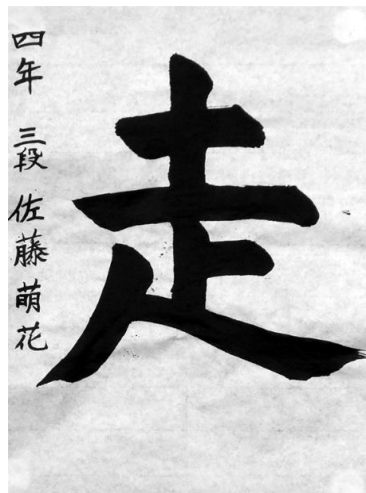 走
四年 三段 佐藤萌花